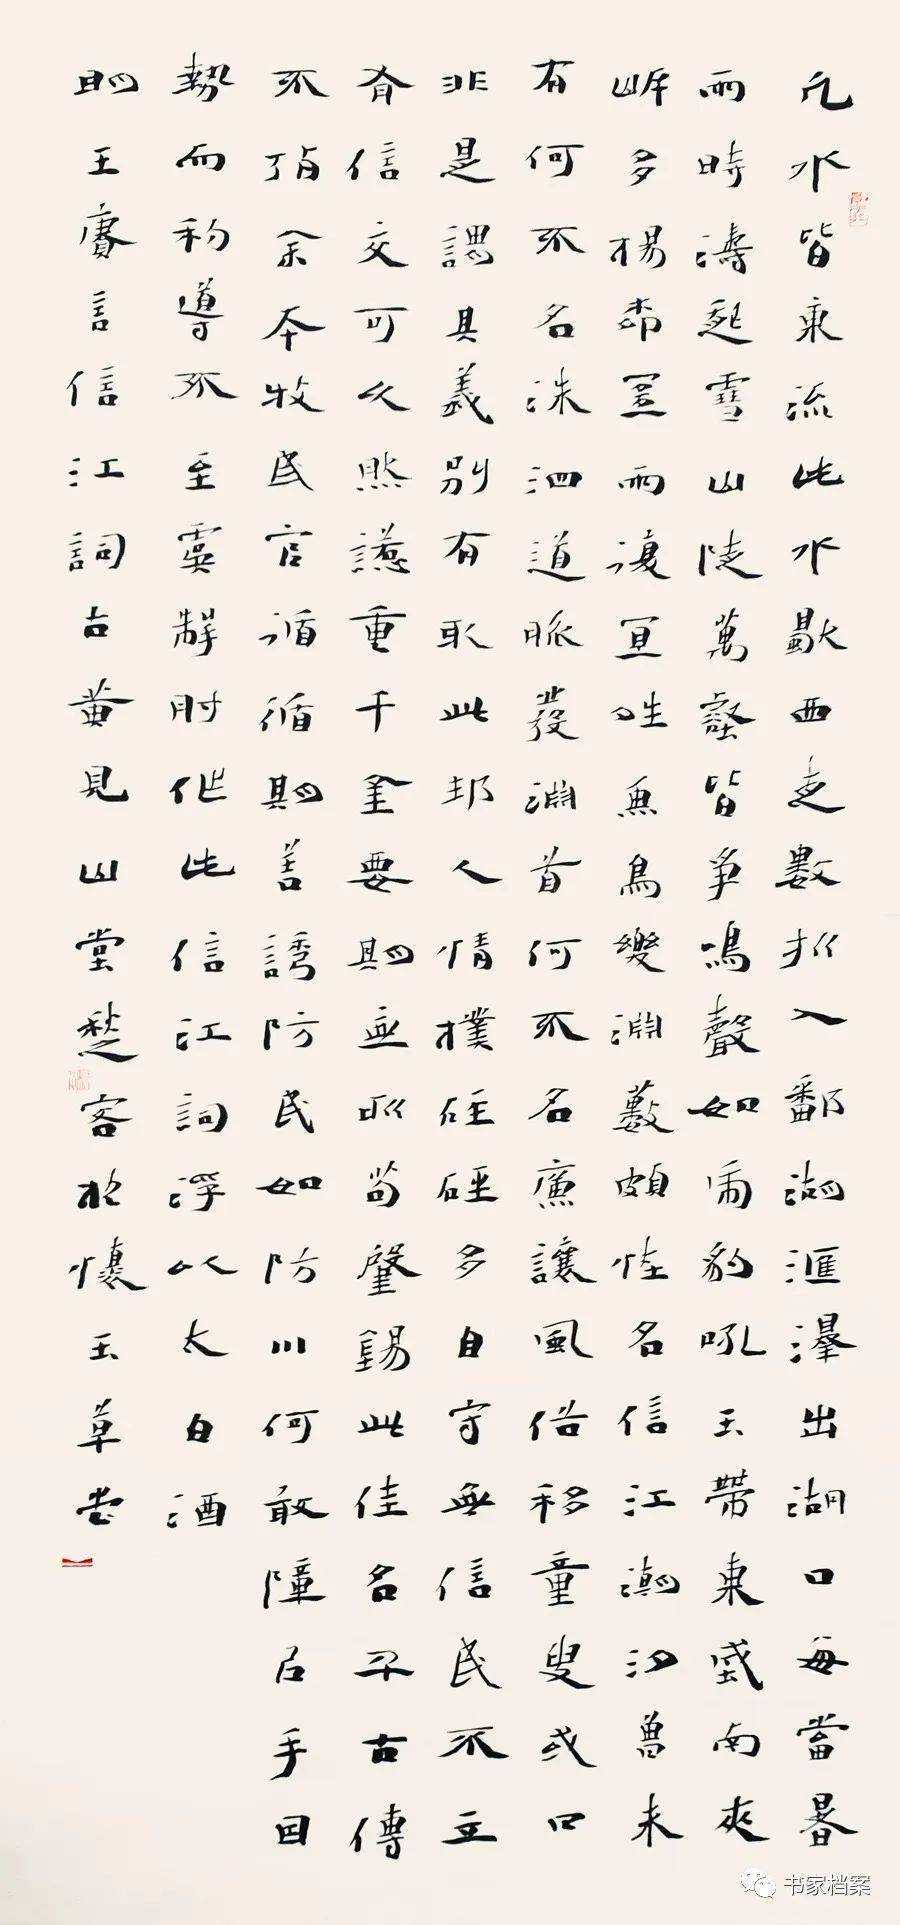 凡水皆東流此水獨西走數派入鄱湖滙澤出湖口每當暑
雨時濤起雪山陡萬壑皆爭鳴聲如虎豹吼玉帶東環南夾
岸多楊柳宜雨復宜晴魚鳥樂淵藪頗怪名信江潮汐曾未
有何不名洙泗道脈發淵首何不名廉讓風俗移童叟或曰
非是謂其義別有取此邦人情樸硜硜多自守無信民不立
有信交可久然諾重千金要期無敢苟肇錫此佳名千古傳
不朽余本牧民官循循期善誘防民如防川何敢障以手因
勢而利導不至虞掣肘作此信江詞浮以太白酒
明王賡言信江詞古黃見山堂愁客於懷玉草堂
书家档案